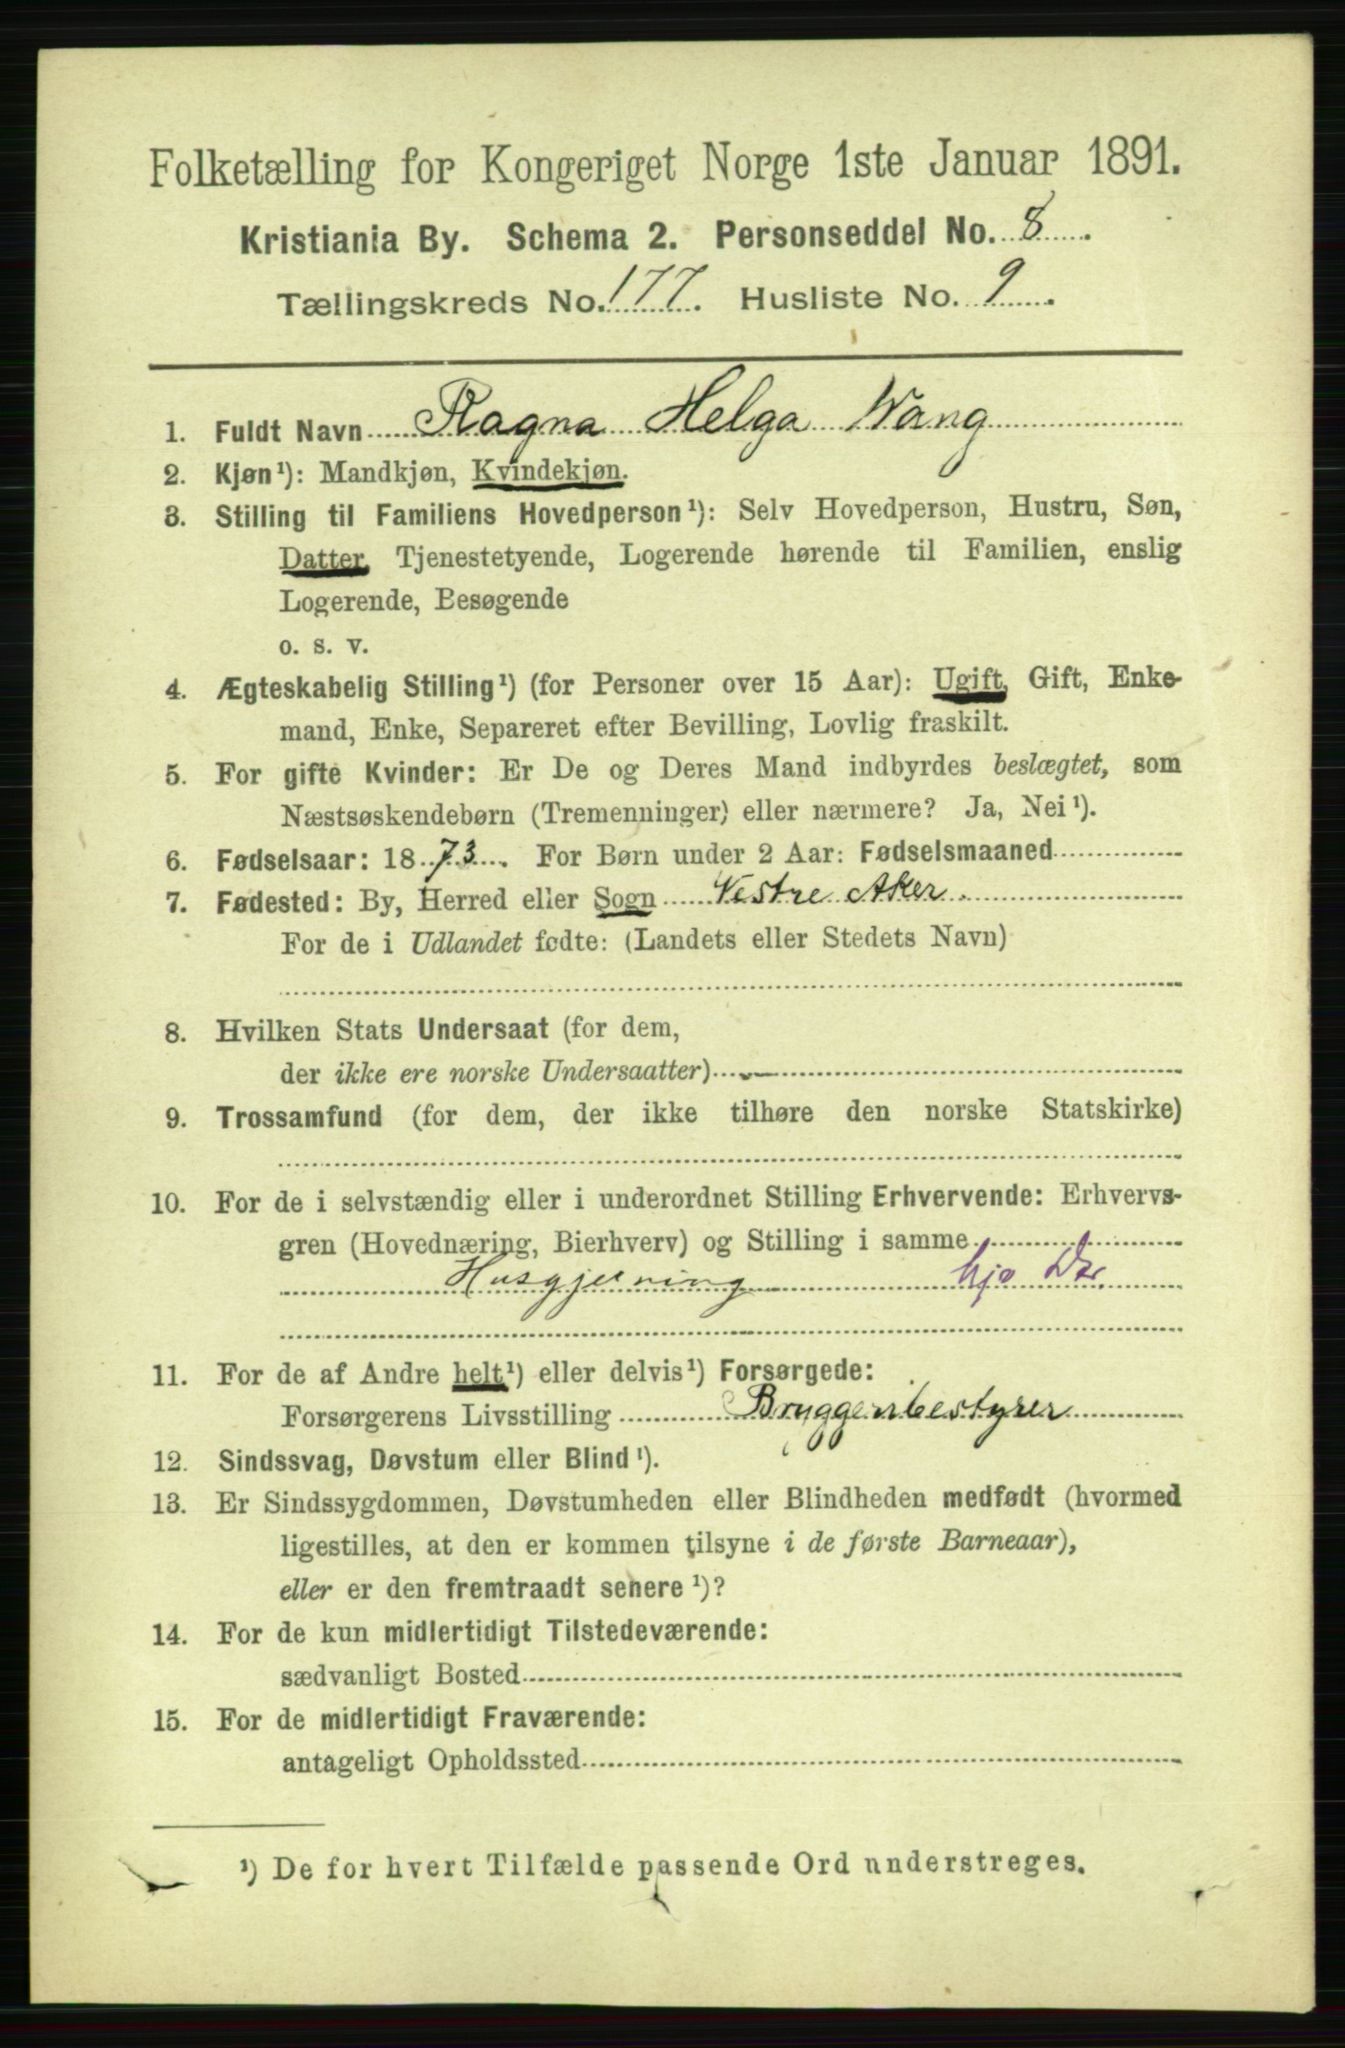 Folketælling for Kongeriget Norge 1ste Januar 1891.
Kristiania By. Schema 2. Personseddel No. 8.
Tællingskreds No. 177. Husliste No. 9.
1. Fuldt Navn Ragna Helga Wang
2. Kjøn¹): Mandkjøn, Kvindekjøn.
3. Stilling til Familiens Hovedperson¹): Selv Hovedperson, Hustru, Søn,
Datter, Tjenestetyende, Logerende hørende til Familien, enslig
Logerende, Besøgende
o. s. v.
4. Ægteskabelig Stilling¹) (for Personer over 15 Aar): Ugift, Gift, Enke-
mand, Enke, Separeret efter Bevilling, Lovlig fraskilt.
5. For gifte Kvinder: Er De og Deres Mand indbyrdes beslægtet, som
Næstsøskendebørn (Tremenninger) eller nærmere? Ja, Nei¹).
6. Fødselsaar: 1873. For Børn under 2 Aar: Fødselsmaaned
7. Fødested: By, Herred eller Sogn Vestre Aker.
For de i Udlandet fødte: (Landets eller Stedets Navn)
8. Hvilken Stats Undersaat (for dem,
der ikke ere norske Undersaatter)
9. Trossamfund (for dem, der ikke tilhøre den norske Statskirke)
10. For de i selvstændig eller i underordnet Stilling Erhvervende: Erhvervs-
gren (Hovednæring, Bierhverv) og Stilling i samme
Husgjerning hjo
11. For de af Andre helt¹) eller delvis¹) Forsørgede:
Forsørgerens Livsstilling Bryggenbestyrer
12. Sindssvag, Døvstum eller Blind¹).
13. Er Sindssygdommen, Døvstumheden eller Blindheden medfødt (hvormed
ligestilles, at den er kommen tilsyne i de første Barneaar),
eller er den fremtraadt senere¹)?
14. For de kun midlertidigt Tilstedeværende:
sædvanligt Bosted
15. For de midlertidigt Fraværende:
antageligt Opholdssted
¹) De for hvert Tilfælde passende Ord understreges.